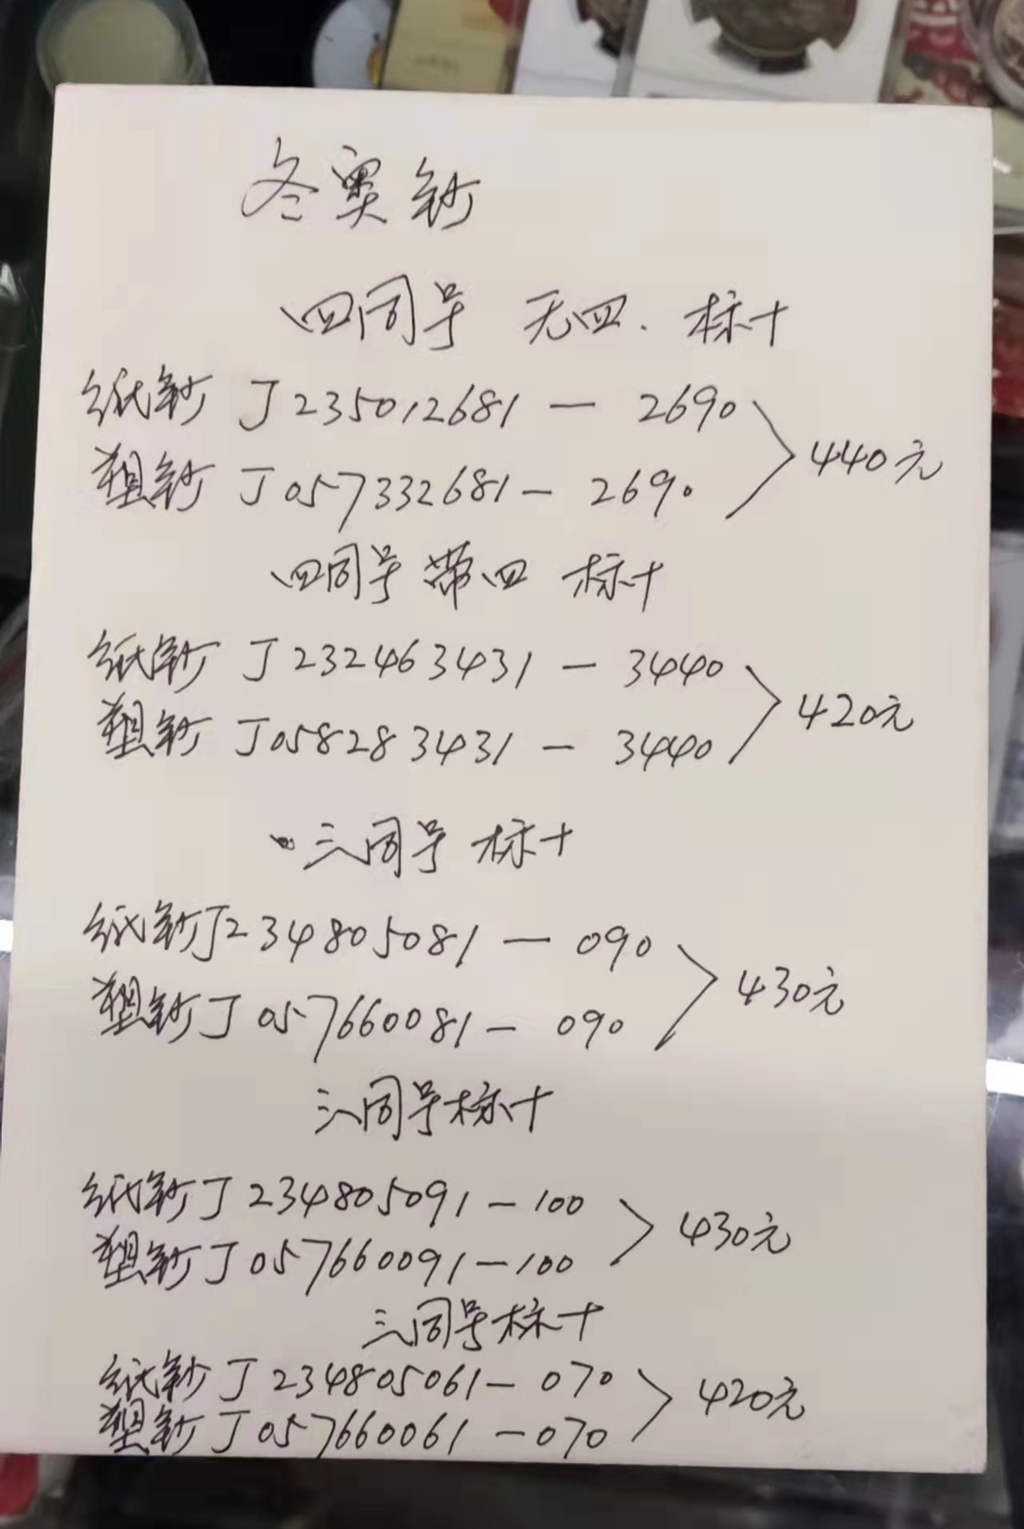 冬奥钞
四同号 无四. 标十
纸钞 J235012681 — 2690
440元
塑钞 J057332681 — 2690
四同号 带四 标十
纸钞 J232463431 — 3440
420元
塑钞 J058283431 — 3440
三同号 标十
纸钞J234805081 — 090
430元
塑钞J057660081 — 090
三同号标十
纸钞J234805091 — 100
430元
塑钞J057660091 — 100
三同号标十
纸钞J234805061 — 070
420元
塑钞J057660061 — 070